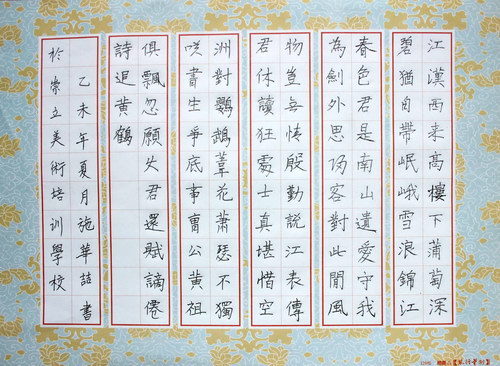 江漢西来高樓下蒲萄深
碧猶自帶岷峨雪浪錦江
春色君是南山遺愛守我
為劍外思归客對此間風
物豈無情殷勤説江表傳
君休讀狂處士真堪惜空
洲對鸚鵡葦花蕭瑟不獨
咲書生爭底事曹公黄祖
俱飄忽願使君還賦謫僊
詩追黄鶴
乙未年夏月施華喆書
於崇立美術培训學校